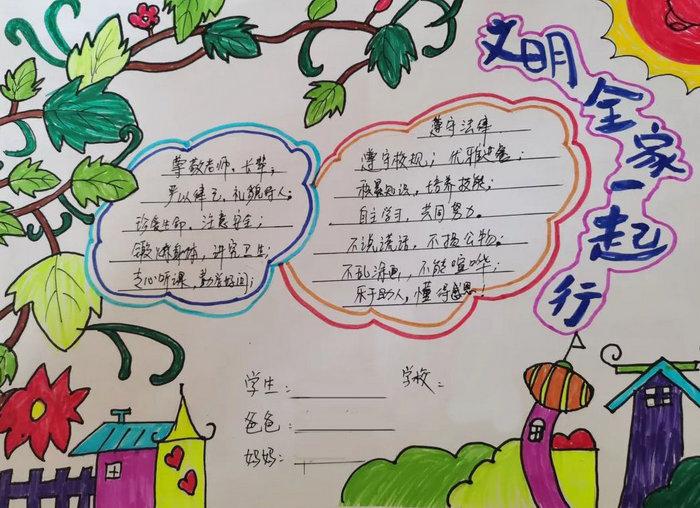 文明全家一起行
尊敬老师、长辈;
严以律己,礼貌待人。
珍爱生命,注意安全;
锻炼身体,讲究卫生;
专心听课,勤学好问;
遵守法律
遵守校规;优雅
积累知识,培养技能;
自主学习,共同努力。
不说谎话,不损公物;
不乱涂画,不能喧哗;
乐于助人,懂得感恩;
学生:
学校:
爸爸:
妈妈: